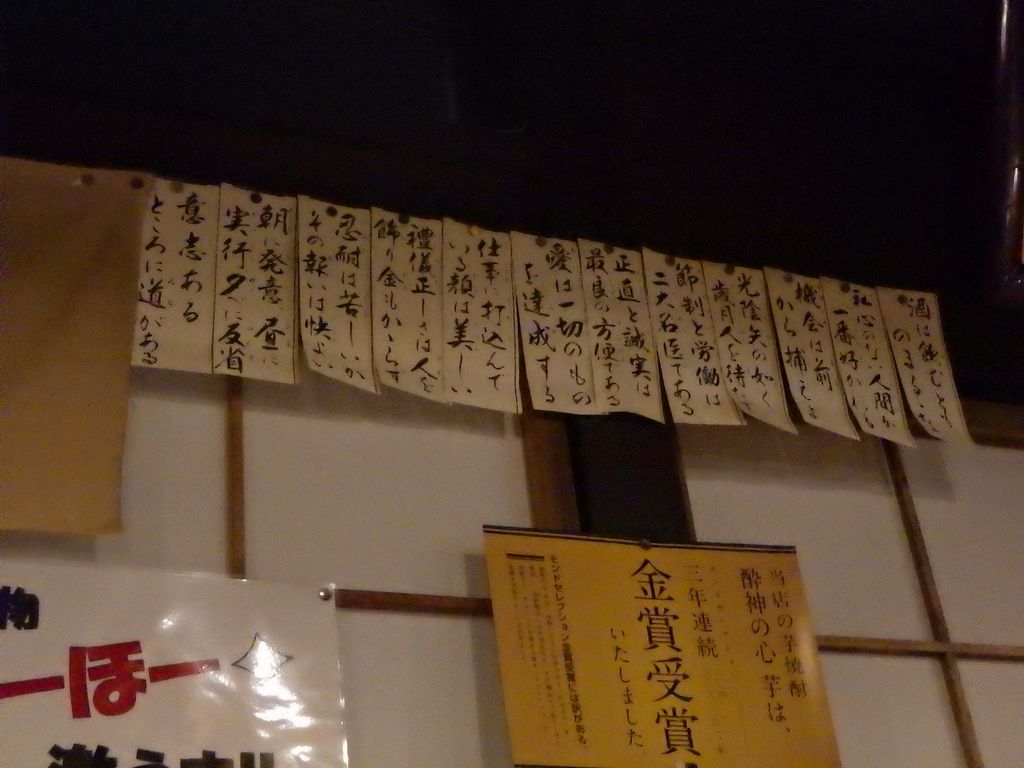 酒は飲むとも
のまるゝな
私心のない人間が
一番好かれる
機会は前
から捕えよ
光陰矢の如く
歳月人を待たず
節制と労働は
二大名医である
正直と誠実は
最良の方便である
愛は一切のもの
を達成する
仕事に打込んで
いる顔は美しい
禮儀正しさは人を
飾り金もかからず
忍耐は苦しいが
その報いは快よい
朝に発意昼に
実行夕べに反省
意志ある
ところに道がある
当店の芋焼酎
酔神の心 芋は、
モンドセレクション
三年連続
金賞受賞
いたしました
モンドセレクション金賞受賞には訳がある。
物
ーほー